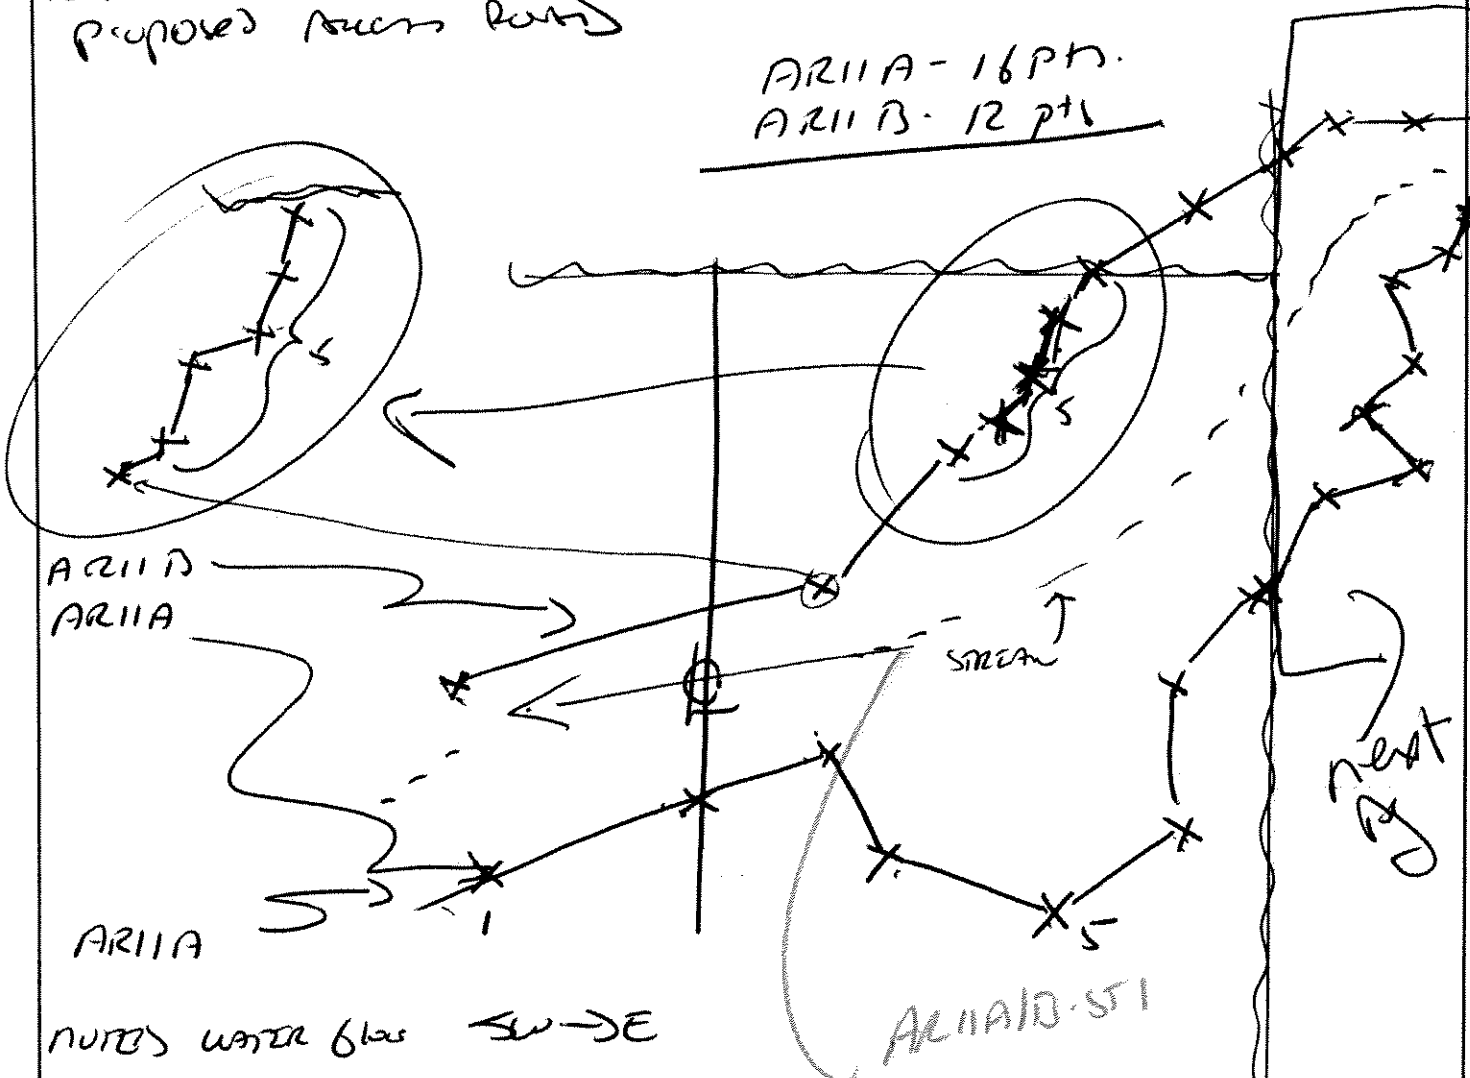 PROPOSED ACCESS ROAD
AR11A - 16 pts.
AR11B - 12 pts
5
5
AR11B
AR11A
STREAM
next
Pg
1
5
AR11A
AR11A/B-ST1
NOTES WATER flow SW→E